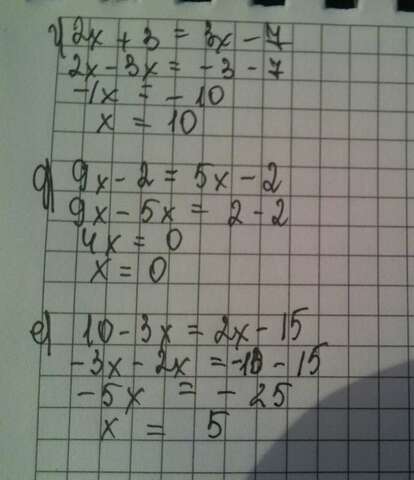 г) 2x + 3 = 3x - 7
2x - 3x = - 3 - 7
-1x = - 10
x = 10
д) 9x - 2 = 5x - 2
9x - 5x = 2 - 2
4x = 0
x = 0
е) 10 - 3x = 2x - 15
-3x - 2x = -10 - 15
-5x = - 25
x = 5